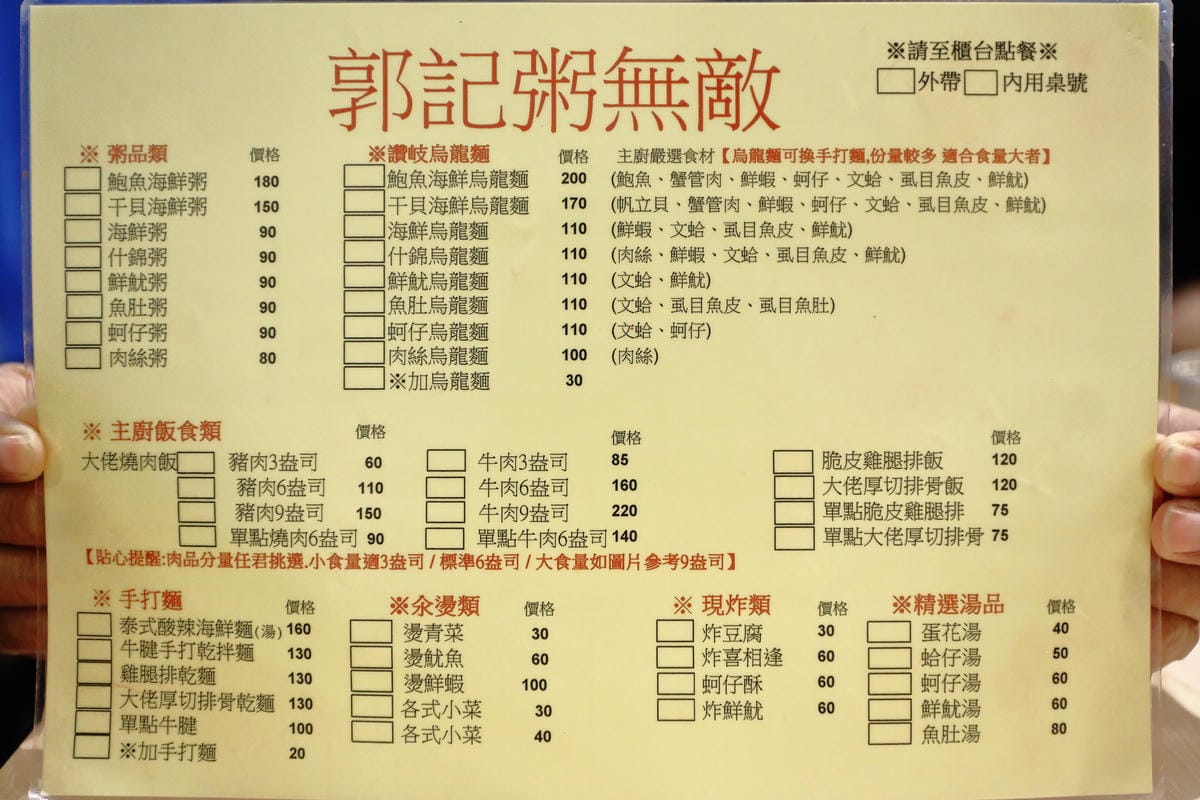 郭記粥無敵
※請至櫃台點餐※
外帶 內用桌號
※ 粥品類 價格
鮑魚海鮮粥 180
干貝海鮮粥 150
海鮮粥 90
什錦粥 90
鮮魷粥 90
魚肚粥 90
蚵仔粥 90
肉絲粥 80
※讚岐烏龍麵 價格 主廚嚴選食材【烏龍麵可換手打麵,份量較多 適合食量大者】
鮑魚海鮮烏龍麵 200 (鮑魚、蟹管肉、鮮蝦、蚵仔、文蛤、虱目魚皮、鮮魷)
干貝海鮮烏龍麵 170 (帆立貝、蟹管肉、鮮蝦、蚵仔、文蛤、虱目魚皮、鮮魷)
海鮮烏龍麵 110 (鮮蝦、文蛤、虱目魚皮、鮮魷)
什錦烏龍麵 110 (肉絲、鮮蝦、文蛤、虱目魚皮、鮮魷)
鮮魷烏龍麵 110 (文蛤、鮮魷)
魚肚烏龍麵 110 (文蛤、虱目魚皮、虱目魚肚)
蚵仔烏龍麵 110 (文蛤、蚵仔)
肉絲烏龍麵 100 (肉絲)
※加烏龍麵 30
※ 主廚飯食類 價格
大佬燒肉飯 豬肉3盎司 60
豬肉6盎司 110
豬肉9盎司 150
單點燒肉6盎司 90
價格
牛肉3盎司 85
牛肉6盎司 160
牛肉9盎司 220
單點牛肉6盎司 140
價格
脆皮雞腿排飯 120
大佬厚切排骨飯 120
單點脆皮雞腿排 75
單點大佬厚切排骨 75
【貼心提醒:肉品分量任君挑選.小食量適3盎司 / 標準6盎司 / 大食量如圖片參考9盎司】
※ 手打麵 價格
泰式酸辣海鮮麵(湯) 160
牛腱手打乾拌麵 130
雞腿排乾麵 130
大佬厚切排骨乾麵 130
單點牛腱 100
※加手打麵 20
※汆燙類 價格
燙青菜 30
燙魷魚 60
燙鮮蝦 100
各式小菜 30
各式小菜 40
※ 現炸類 價格
炸豆腐 30
炸喜相逢 60
蚵仔酥 60
炸鮮魷 60
※精選湯品 價格
蛋花湯 40
蛤仔湯 50
蚵仔湯 60
鮮魷湯 60
魚肚湯 80